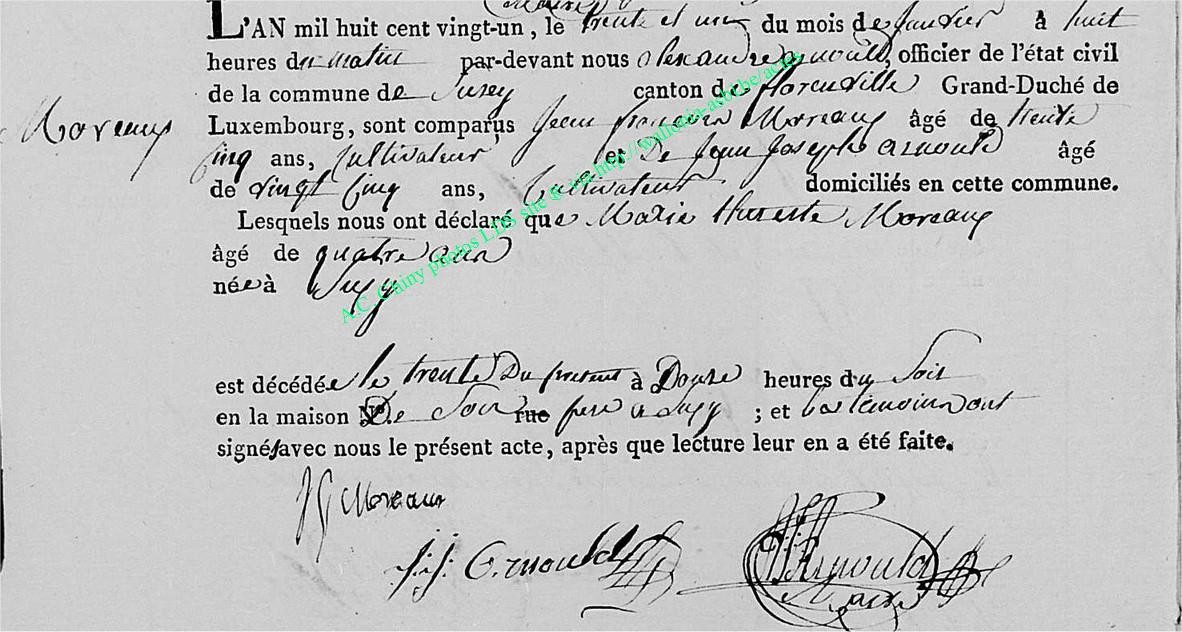 L'AN mil huit cent vingt-un, le trente et un du mois de janvier à huit
heures du matin par-devant nous alexandre arnould, officier de l'état civil
de la commune de Suxy canton de florenville Grand-Duché de
Moreaux Luxembourg, sont comparus Jean françois Moreaux âgé de trente
cinq ans, Cultivateur et De Jean Joseph arnould âgé
de vingt cinq ans, Cultivateur domiciliés en cette commune.
Lesquels nous ont déclaré que Marie Moreaux
âgé de quatre ans
née à Suxy
est décédée le trente Du present à Douze heures du Soir
en la maison No. De Son rue pere a Suxy ; et les temoins ont
signé avec nous le présent acte, après que lecture leur en a été faite.
J f Moreaux
j: j: Arnould
Arnould
Maire
A.C. Chiny photos LDS site ® via http://wallonia-asbl.be/actes